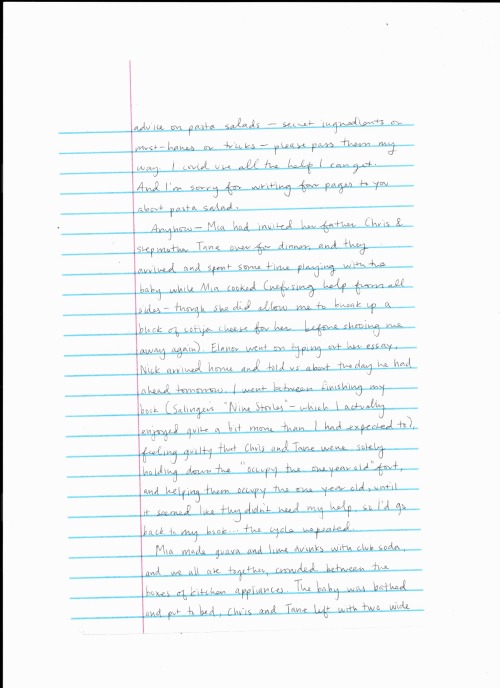 advice on pasta salads — secret ingredients or
must-haves or tricks — please pass them my
way. I could use all the help I can get.
And I'm sorry for writing four pages to you
about pasta salad.
Anyhow — Mia had invited her father Chris &
stepmother Jane over for dinner, and they
arrived and spent some time playing with the
baby while Mia cooked (refusing help from all
sides — though she did allow me to break up a
block of cotija cheese for her before shooing me
away again). Eleanor went on typing out her essay,
Nick arrived home and told us about the day he had
ahead tomorrow. I went between finishing my
book (Salinger's "Nine Stories" – which I actually
enjoyed quite a bit more than I had expected to),
feeling guilty that Chris and Jane were solely
holding down the "occupy the one year old" fort,
and helping them occupy the one year old, until
it seemed like they didn't need my help, so I'd go
back to my book... the cycle repeated.
Mia made guava and lime drinks with club soda,
and we all ate together, crowded between the
boxes of kitchen appliances. The baby was bathed
and put to bed, Chris and Jane left with two wide